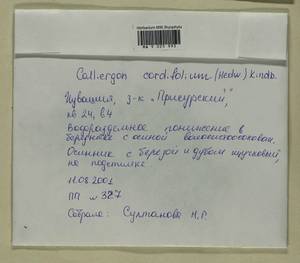 Herbarium MW, Bryophyta
Calliergon cordifolium (Hedw.) Kindb.
Чувашия, з-к "Присурский",
кв 24, в4
Водораздельное понижение в
березняке с осиной
Осинник с березой и дубом щучковый,
на подстилке.
11.08.2001
ПП № 327
Собрала: Султанова Н.Р.